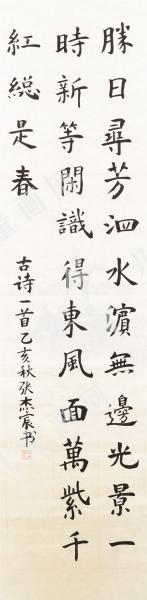 勝日尋芳泗水濵無邊光景一
時新等閑識得東風面萬紫千
紅總是春
古诗一首乙亥秋张杰宸书